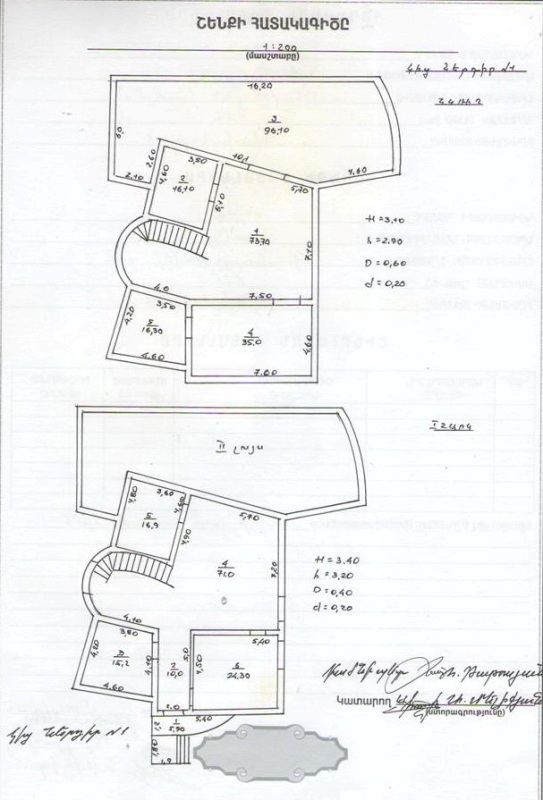 ՇԵՆՔԻ ՀԱՏԱԿԱԳԻԾԸ
1:200
(մասշտաբը)
16,20
3
96,10
2,10
2,60
3,80
10,1
5,70
4,60
4,60
2
16,10
5,10
1
73,70
7,10
H=3,10
h=2,90
D=0,60
d=0,20
4,0
7,50
3,50
4,20
5
16,30
4,60
4
35,0
4,60
7,60
I հարկ
II լույս
4,80
3,60
5
16,9
4,90
5,70
4
71,0
7,20
H=3,40
h=3,20
D=0,40
d=0,20
4,10
3,80
4,20
3
15,2
4,60
4,10
5,0
2
10,0
4,50
5,40
6
24,30
2,0
5,40
1
5,90
1,2
1,80
1,9
Կատարող
(ստորագրությունը)